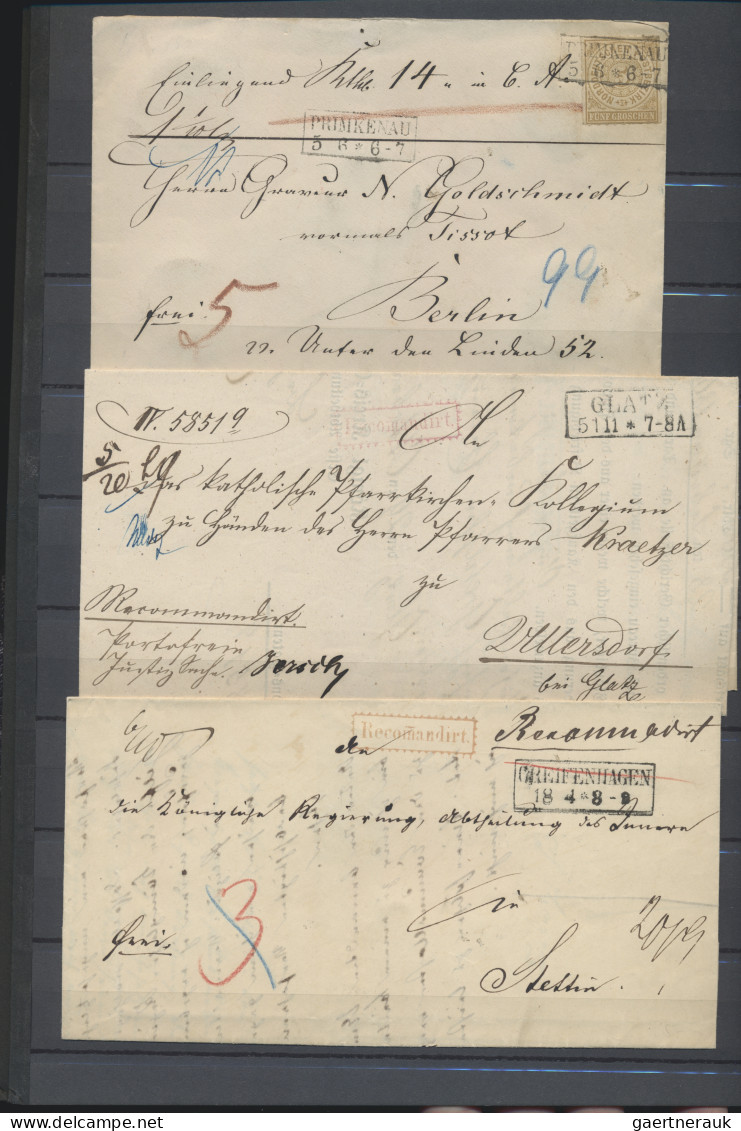 Einliegend Rthlr. 14 „ in C. A.
PRIMKENAU
5 6 * 6-7
FÜNF GROSCHEN
PRIMKENAU
5 6 * 6-7
Herrn Graveur N. Goldschmidt
vormals Tissot
99
Berlin
frei.
5
Unter den Linden 52.
N. 5851
Recomandirt.
An
GLATZ
5 11 * 7-8 A
5/20
das katholische Pfarrkirchen-Kollegium
zu Händen des Herrn Pfarrers Kraetzer
zu
Recommandirt.
Ullersdorf
Portofreie
Justiz Sache.
bei Glatz
Recomandirt.
An
Recommandirt
GREIFENHAGEN
18 4 * 8-9
die Königliche Regierung, Abtheilung des Innern
3
in
frei.
Stettin.
gaertnerauk